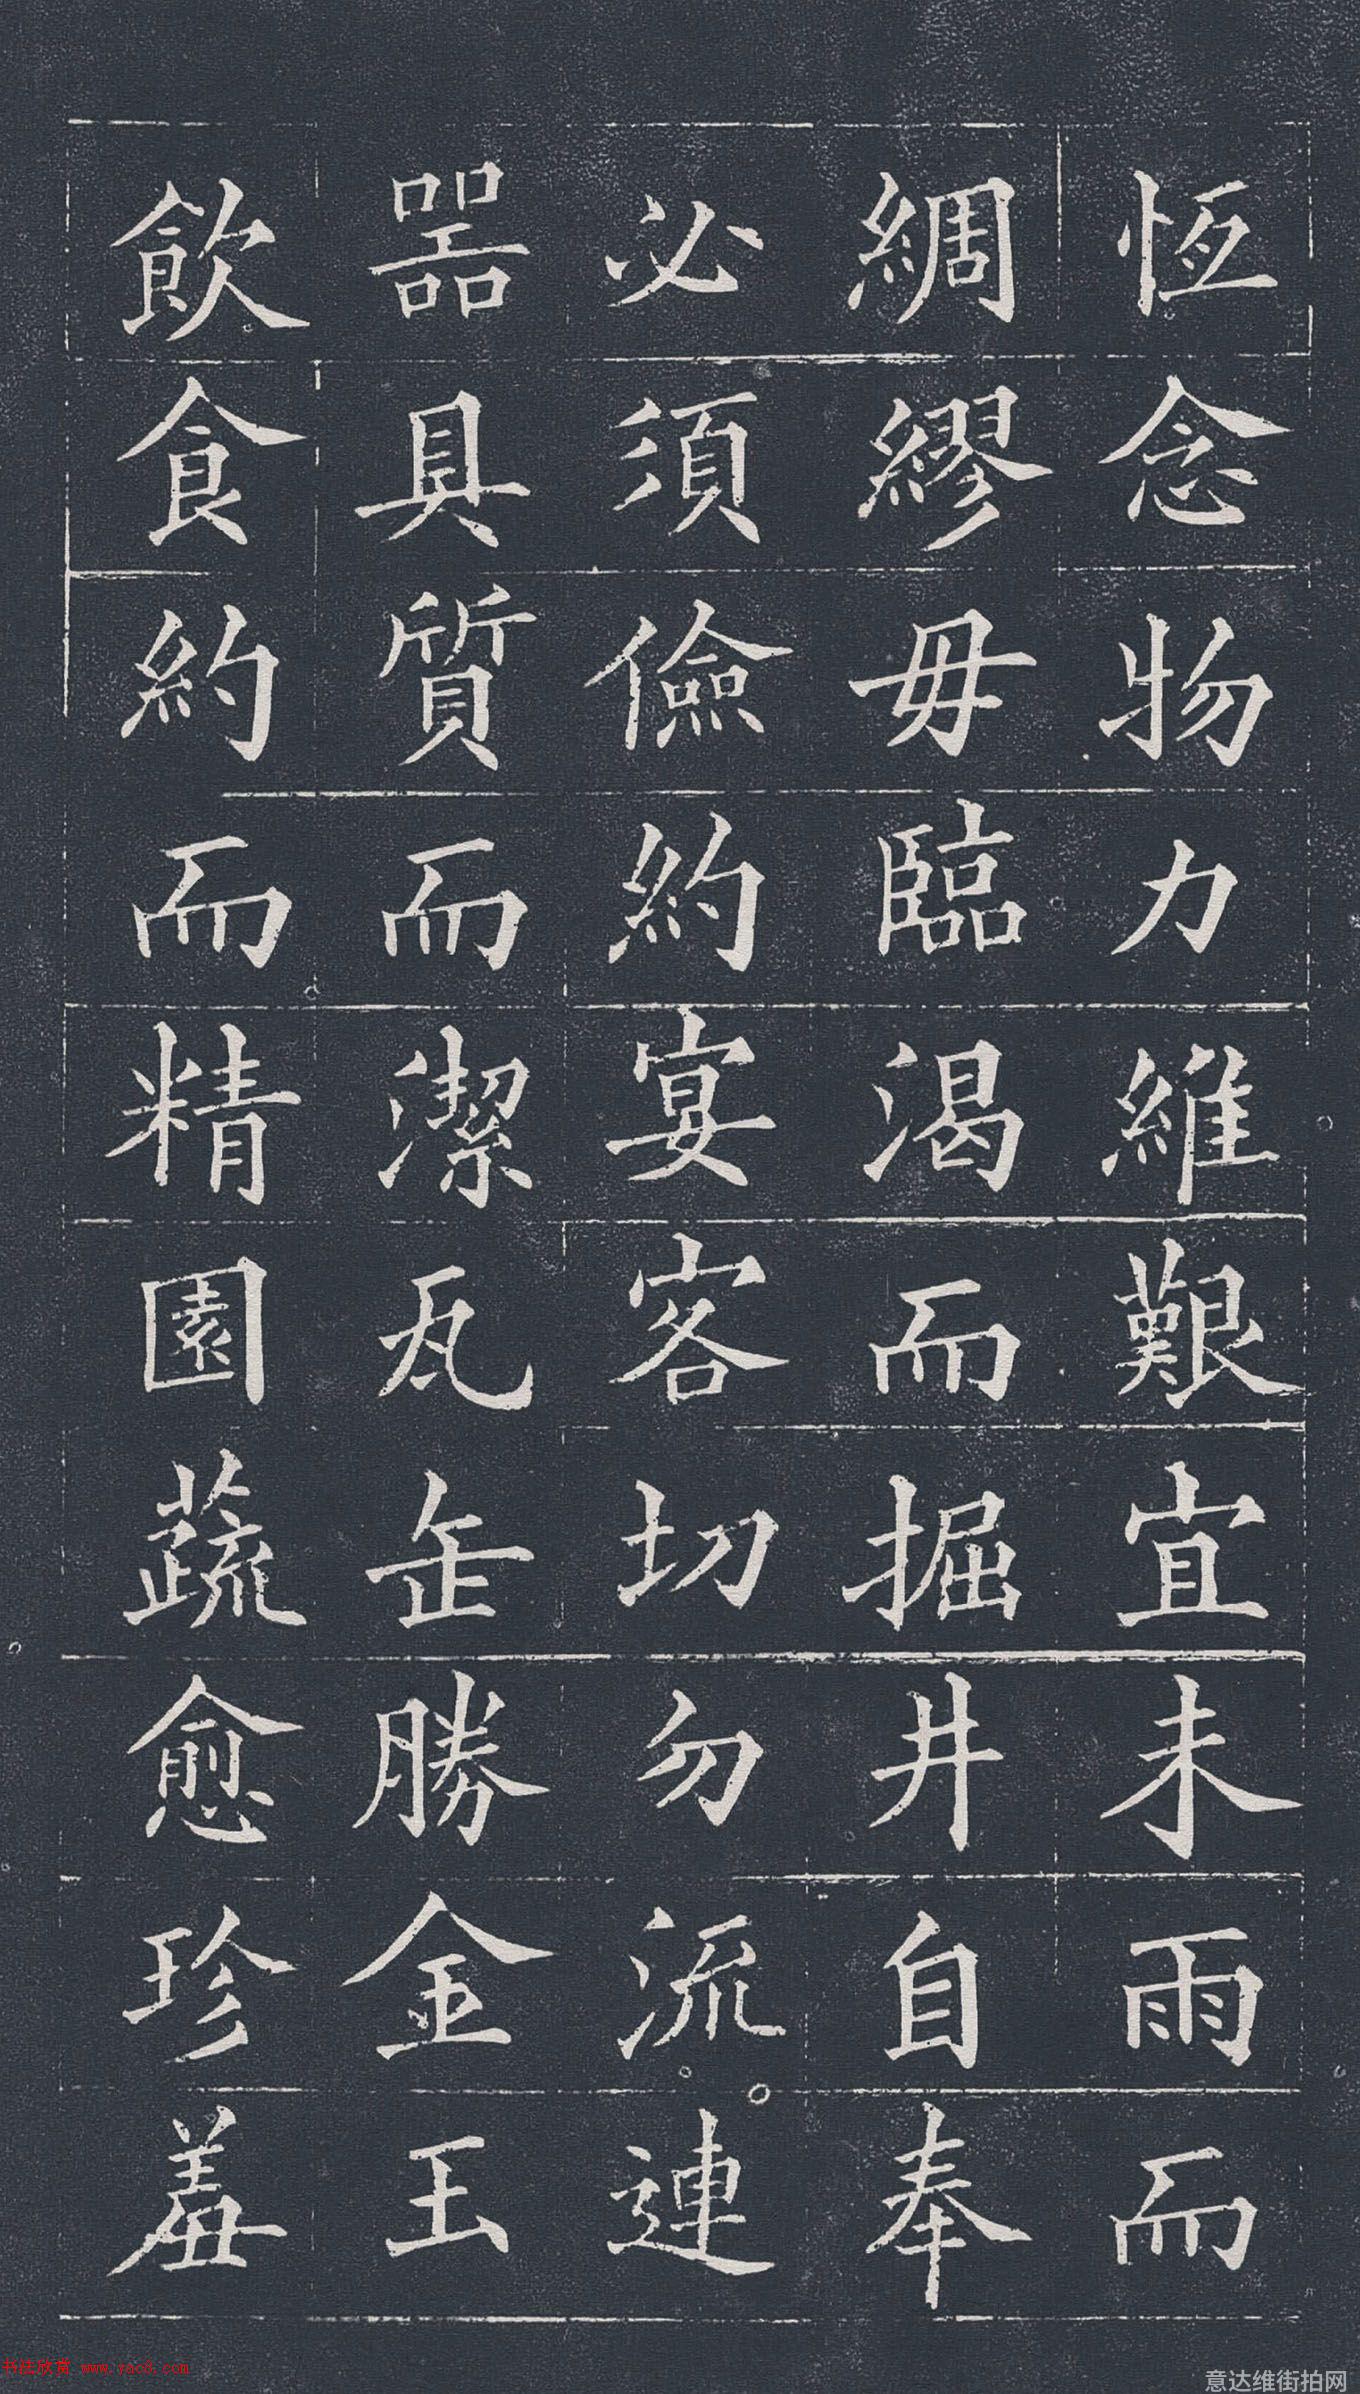 恆念物力維艱宜未雨而
綢繆毋臨渴而掘井自奉
必須儉約宴客切勿流連
器具質而潔瓦缶勝金玉
飲食約而精園蔬愈珍羞
书法欣赏 www.yac8.com
意达维街拍网